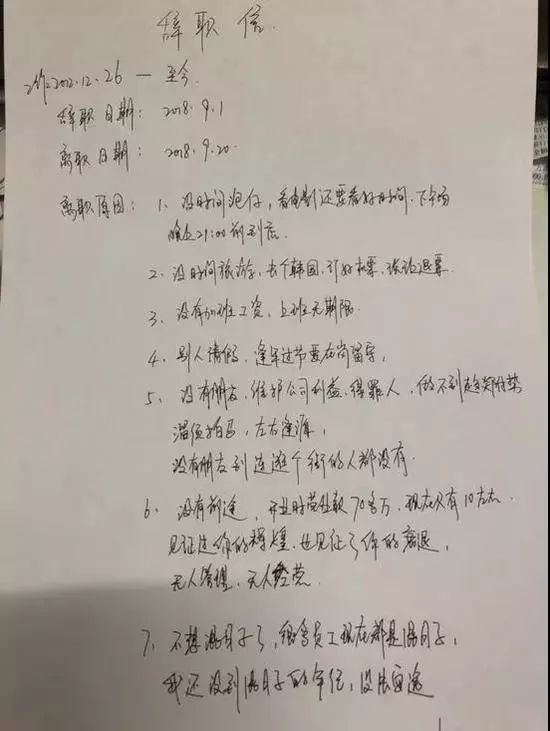 辞职信
工作:2012.12.26 — 至今
辞职日期: 2018.9.1
离职日期: 2018.9.20.
离职原因: 1、没时间泡仔,看电影还要看好时间.下午场
晚上21:00前到底.
2、没时间旅游,去个韩国,订好机票,谈论退票.
3、没有加班工资,上班无期限.
4、别人请假,逢年过节要在岗留守,
5、没有朋友,维护公司利益,得罪人,做不到趋炎附势
溜须拍马,左右逢源,
没有朋友到连逛个街的人都没有.
6、没有前途,开业时营业额70多万,现在只有10左右.
见证过你的辉煌.也见证了你的衰退,
无人管理,无人经营.
7、不想混日子了,很多员工现在都是混日子,
我还没到混日子的年纪,没法